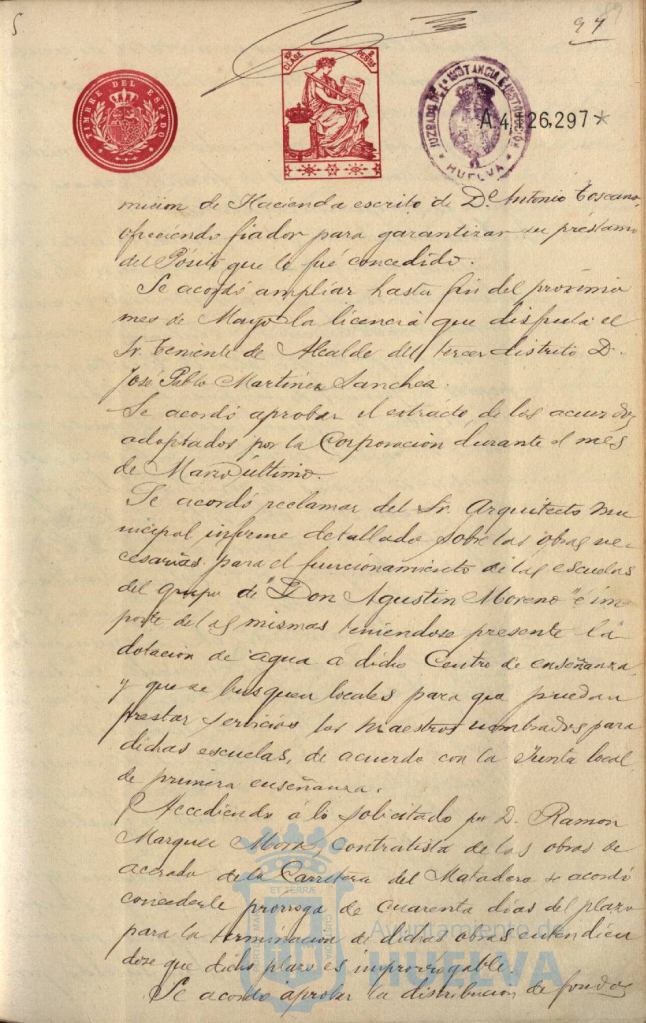 5
97
89
TIMBRE DEL ESTADO
10ª CLASE 2 PESETAS
JUZGADO DE 1ª INSTANCIA E INSTRUCCIÓN
HUELVA
A.4.126,297*
mision de Hacienda escrito de D. Antonio Toscano,
ofreciendo fiador para garantizar su préstamo
del Pósito que le fué concedido.
Se acordó ampliar hasta fin del próximo
mes de Mayo la licencia que disfruta el
Sr. Teniente de Alcalde del tercer distrito D.
José Pablo Martinez Sanchez.
Se acordó aprobar el extracto de los acuerdos
adoptados por la Corporacion durante el mes
de Marzo último.
Se acordó reclamar del Sr. Arquitecto mu
nicipal informe detallado sobre las obras ne
cesarias para el funcionamiento de las escuelas
del grupo de "Don Agustin Moreno" é im
porte de las mismas teniendose presente la
dotacion de agua á dicho Centro de enseñanza
y que se busquen locales para que puedan
prestar servicios los maestros nombrados para
dichas escuelas, de acuerdo con la Junta local
de primera enseñanza.
Accediendo á lo solicitado por D. Ramon
Marquez Mora, contratista de las obras de
acerado de la Carretera del Matadero se acordó
concederle prorroga de cuarenta dias del plazo
para la terminacion de dichas obras entendien
dose que dicho plazo es improrrogable.
Se acordó aprobar la distribucion de fondos
Ayuntamiento de
HUELVA